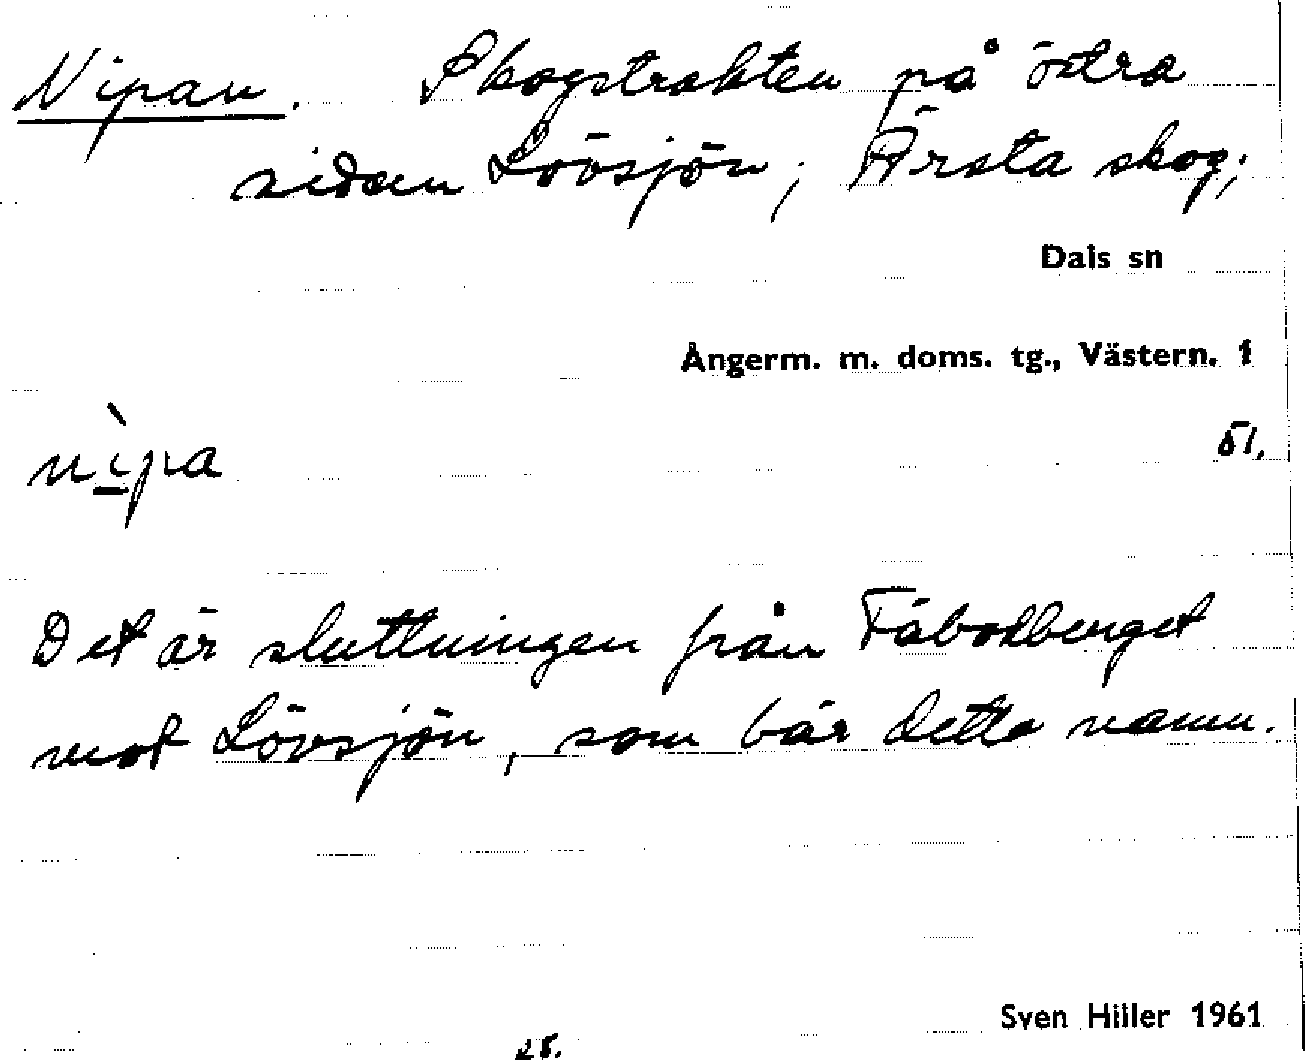 Nipan. Skogstrakten på östra
sidan Lövsjön; Ärsta skog;
Dals sn
Ångerm. m. doms. tg., Västern. 1
51.
nìpa
Det är sluttningen från Fäbodberget
mot Lövsjön, som bär detta namn.
Sven Hiller 1961
25.